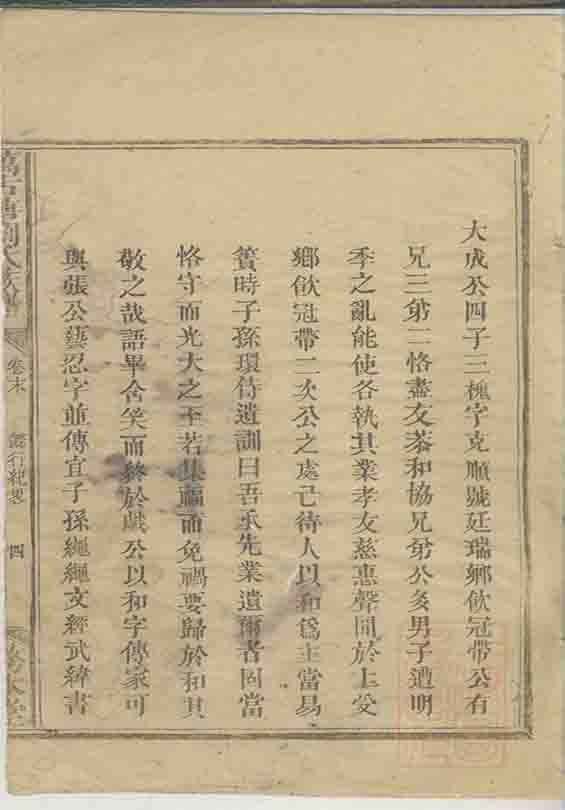 大成公四子三槐字克順號廷瑞鄉飲冠帶公有
兄三弟二恪盡友恭和協兄弟公多男子遭明
季之亂能使各執其業孝友慈惠聲聞於上受
鄉飲冠帶二次公之處己待人以和為主當易
簀時子孫環侍遺訓曰吾承先業遺爾者固當
恪守而光大之至若集福而免禍要歸於和其
敬之哉語畢含笑而終於戲公以和字傳家可
與張公藝忍字並傳宜子孫繩繩文經武緯書
劉氏族譜
卷末
懿行紀畧
四